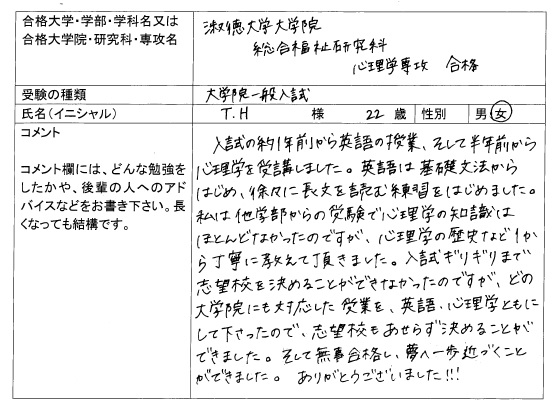 合格大学・学部・学科名又は
合格大学院・研究科・専攻名
淑徳大学大学院
総合福祉研究科
心理学専攻 合格
受験の種類
大学院一般入試
氏名(イニシャル)
T.H 様 22 歳 性別 男・女
コメント
コメント欄には、どんな勉強を
したかや、後輩の人へのアド
バイスなどをお書き下さい。長
くなっても結構です。
入試の約1年前から英語の授業、そして半年前から
心理学を受講しました。英語は基礎文法から
はじめ、徐々に長文を読む練習をはじめました。
私は他学部からの受験で心理学の知識は
ほとんどなかったのですが、心理学の歴史など1か
ら丁寧に教えて頂きました。入試ギリギリまで
志望校を決めることができなかったのですが、どの
大学院にも対応した授業を、英語・心理学ともに
して下さったので、志望校もあせらず決めることが
できました。そして無事合格し、夢へ一歩近づくこと
ができました。ありがとうございました!!!